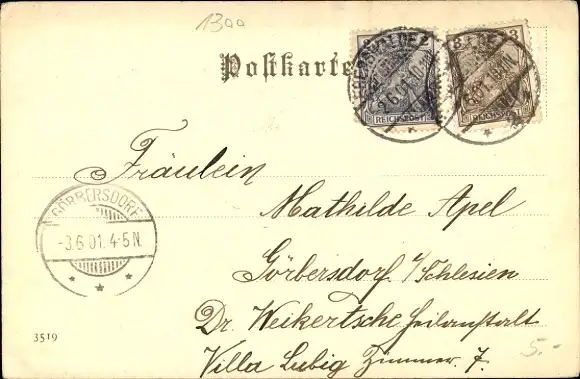 1300
Postkarte
2
3
REICHSPOST
2.6.01.
GÖRBERSDORF
-3.6.01.4-5N.
Fräulein
Mathilde Apel
Görbersdorf i/Schlesien
Dr. Weikertsche Heilanstalt
Villa Lubig Zimmer 7.
3519
5.-